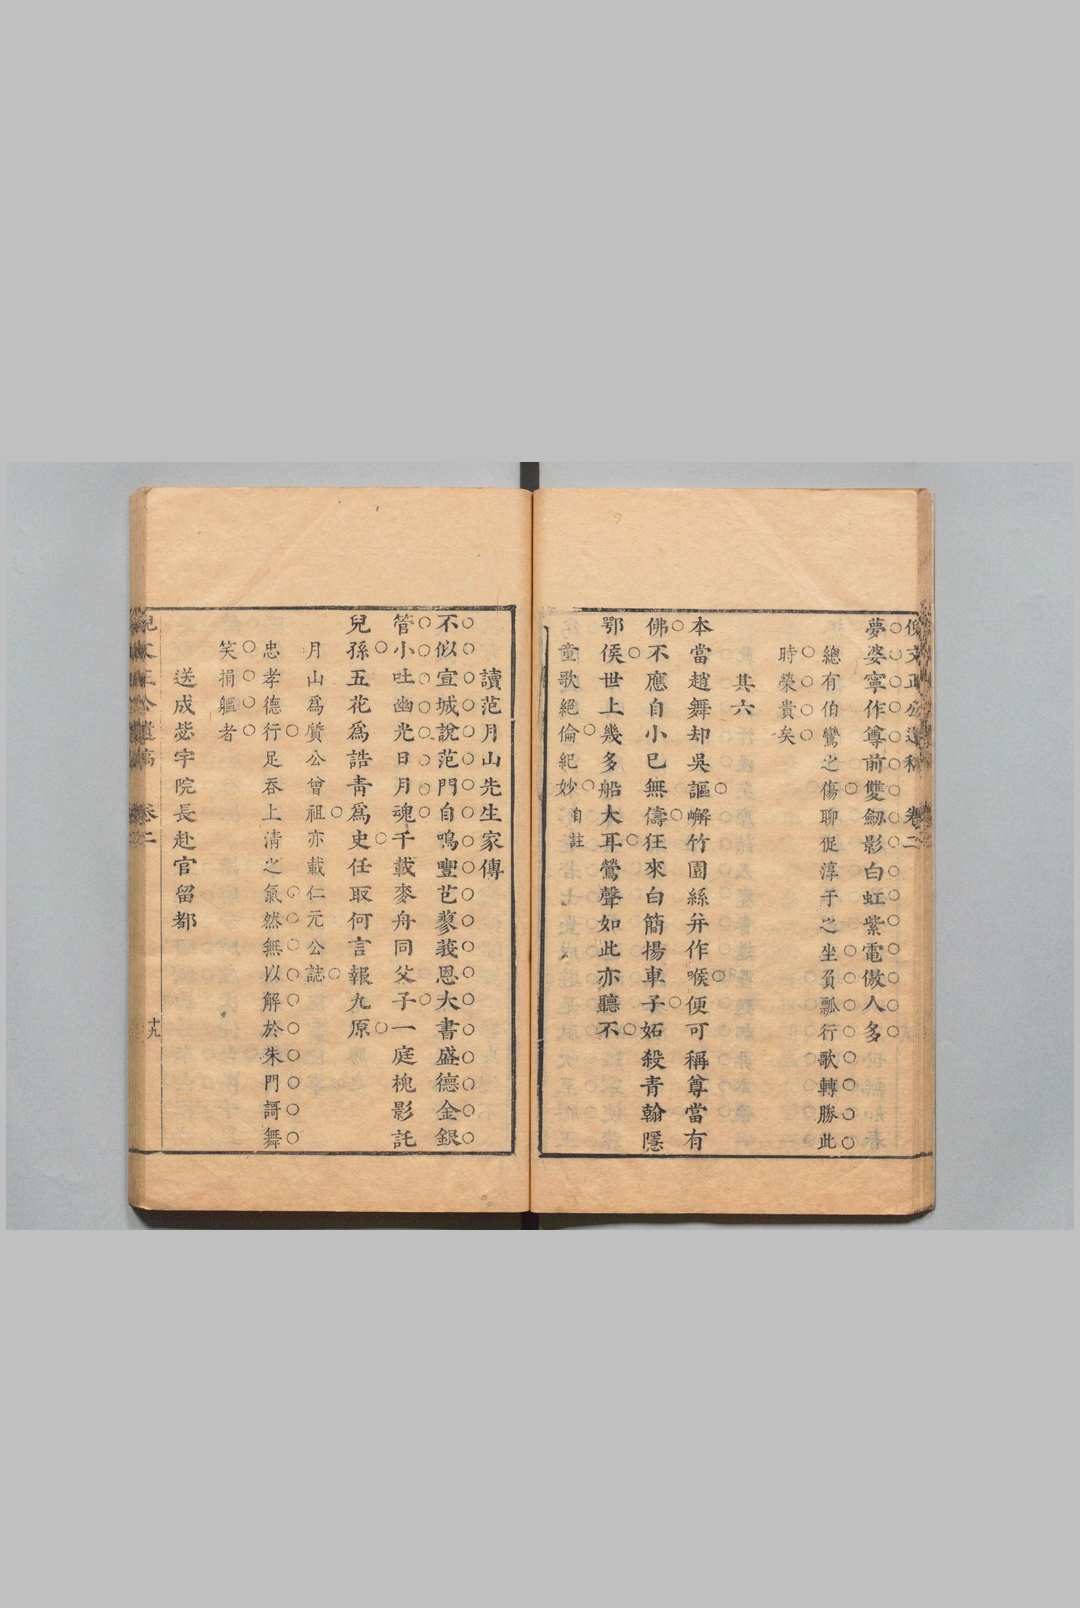 倪文正公遺稿 卷二
夢婆寧作尊前雙劔影白虹紫電傲人多
總有伯鸞之傷聊促淳于之坐負瓢行歌轉勝此
時榮貴矣
其六
本當趙舞却吳謳嶰竹園絲弁作喉便可稱尊當有
佛不應自小已無儔狂來白簡揚車子妬殺青翰隱
鄂侯世上幾多船大耳鶯聲如此亦聽不
童歌絕倫紀妙 自註
讀范月山先生家傳
不似宣城說范門自鳴豐芑蓼莪恩大書盛德金銀
管小吐幽光日月魂千載麥舟同父子一庭槐影託
兒孫五花爲誥青爲史任取何言報九原
月山爲質公曾祖亦載仁元公誌
忠孝德行足吞上清之氣然無以解於朱門謌舞
笑捐軀者
送成毖宇院長赴官留都
倪文正公遺稿 卷二 十九